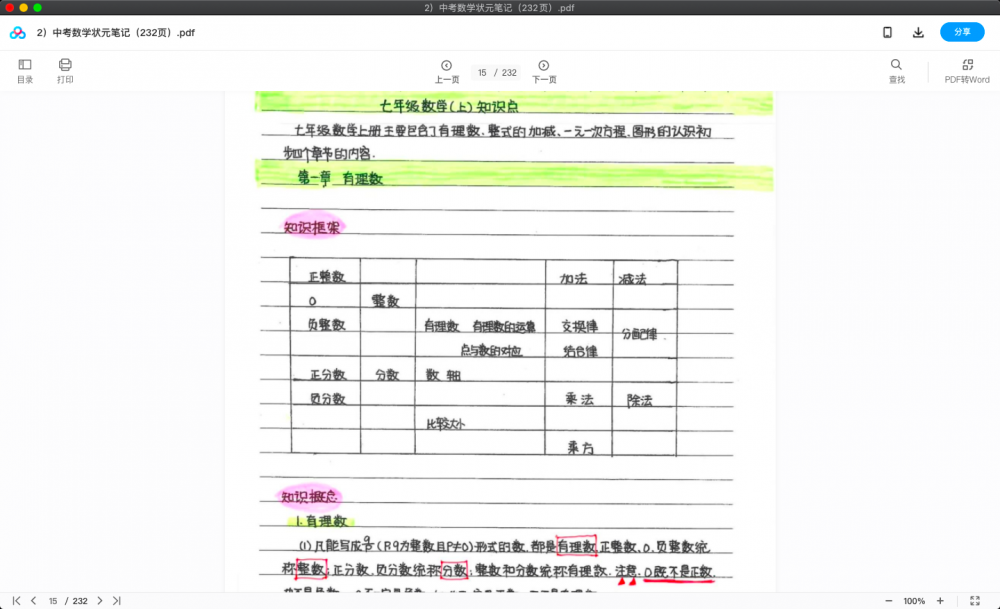 2）中考数学状元笔记（232页）.pdf
2）中考数学状元笔记（232页）.pdf
分享
目录
打印
上一页
15 / 232
下一页
查找
PDF转Word
七年级数学(上)知识点
七年级数学上册主要包含了有理数、整式的加减、一元一次方程、图形的认识初
步四个章节的内容.
第一章 有理数
知识框架
正整数 加法 减法
0 整数
负整数 有理数 有理数的运算 交换律 分配律
点与数的对应 结合律
正分数 分数 数轴
负分数 乘法 除法
比较大小
乘方
知识概念
1.有理数
(1)凡能写成 q/p (p,q为整数且p≠0)形式的数,都是有理数.正整数、0、负整数统
称整数;正分数、负分数统称分数;整数和分数统称有理数.注意:0既不是正数,
15 / 232
100%